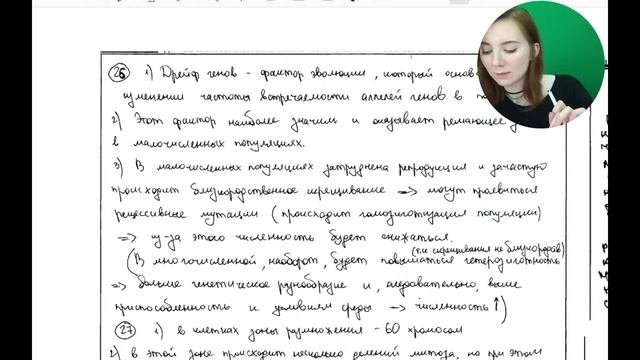 26 1) Дрейф генов - фактор эволюции, который основ
изменении частоты встречаемости аллелей генов в
2) Этот фактор наиболее значим и оказывает решающее
в малочисленных популяциях.
3) В малочисленных популяциях затруднена репродукция и зачастую
происходит близкородственное скрещивание => могут проявиться
рецессивные мутации (происходит гомозиготизация популяции)
=> из-за этого численность будет снижаться.
(т.к скрещивания не близкородств)
(В многочисленной, наоборот, будет повышаться гетерозиготность
=> больше генетическое разнообразие и, следовательно, выше
приспособленность к условиям среды => численность ↑)
27 1) в клетках зоны размножения - 60 хромосом
2) в этой зоне происходит несколько делений митоза, но при этом